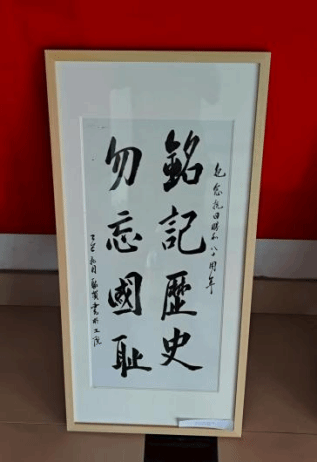 纪念抗日胜利八十周年
銘記歷史
勿忘國恥